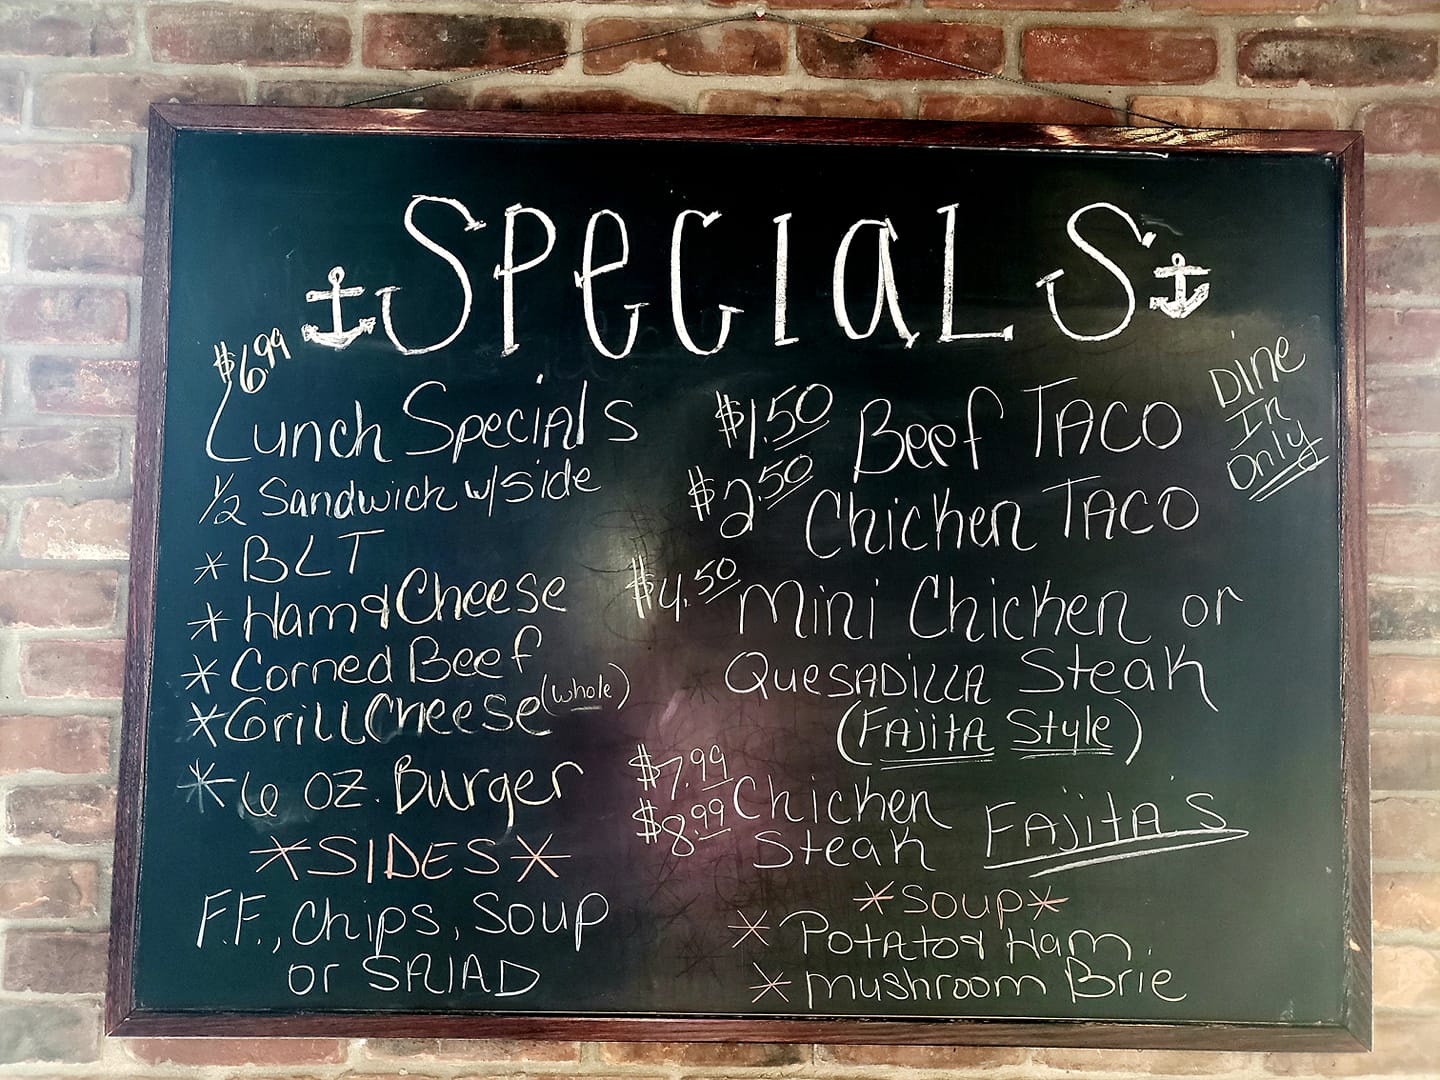 SPeCIaLS
$6.99
Lunch Specials
1/2 Sandwich w/side
* BLT
* Ham & Cheese
* Corned Beef
* Grill Cheese (whole)
* 6 oz. Burger
*SIDES*
F.F., Chips, Soup
or SALAD
Dine
In
Only
$1.50 Beef TACO
$2.50 Chicken TACO
$4.50 Mini Chicken or
QuesADILLA Steak
(FAjitA Style)
$7.99 Chicken
$8.99 Steak FAjitA's
*SOUP*
* Potato & Ham
* Mushroom Brie